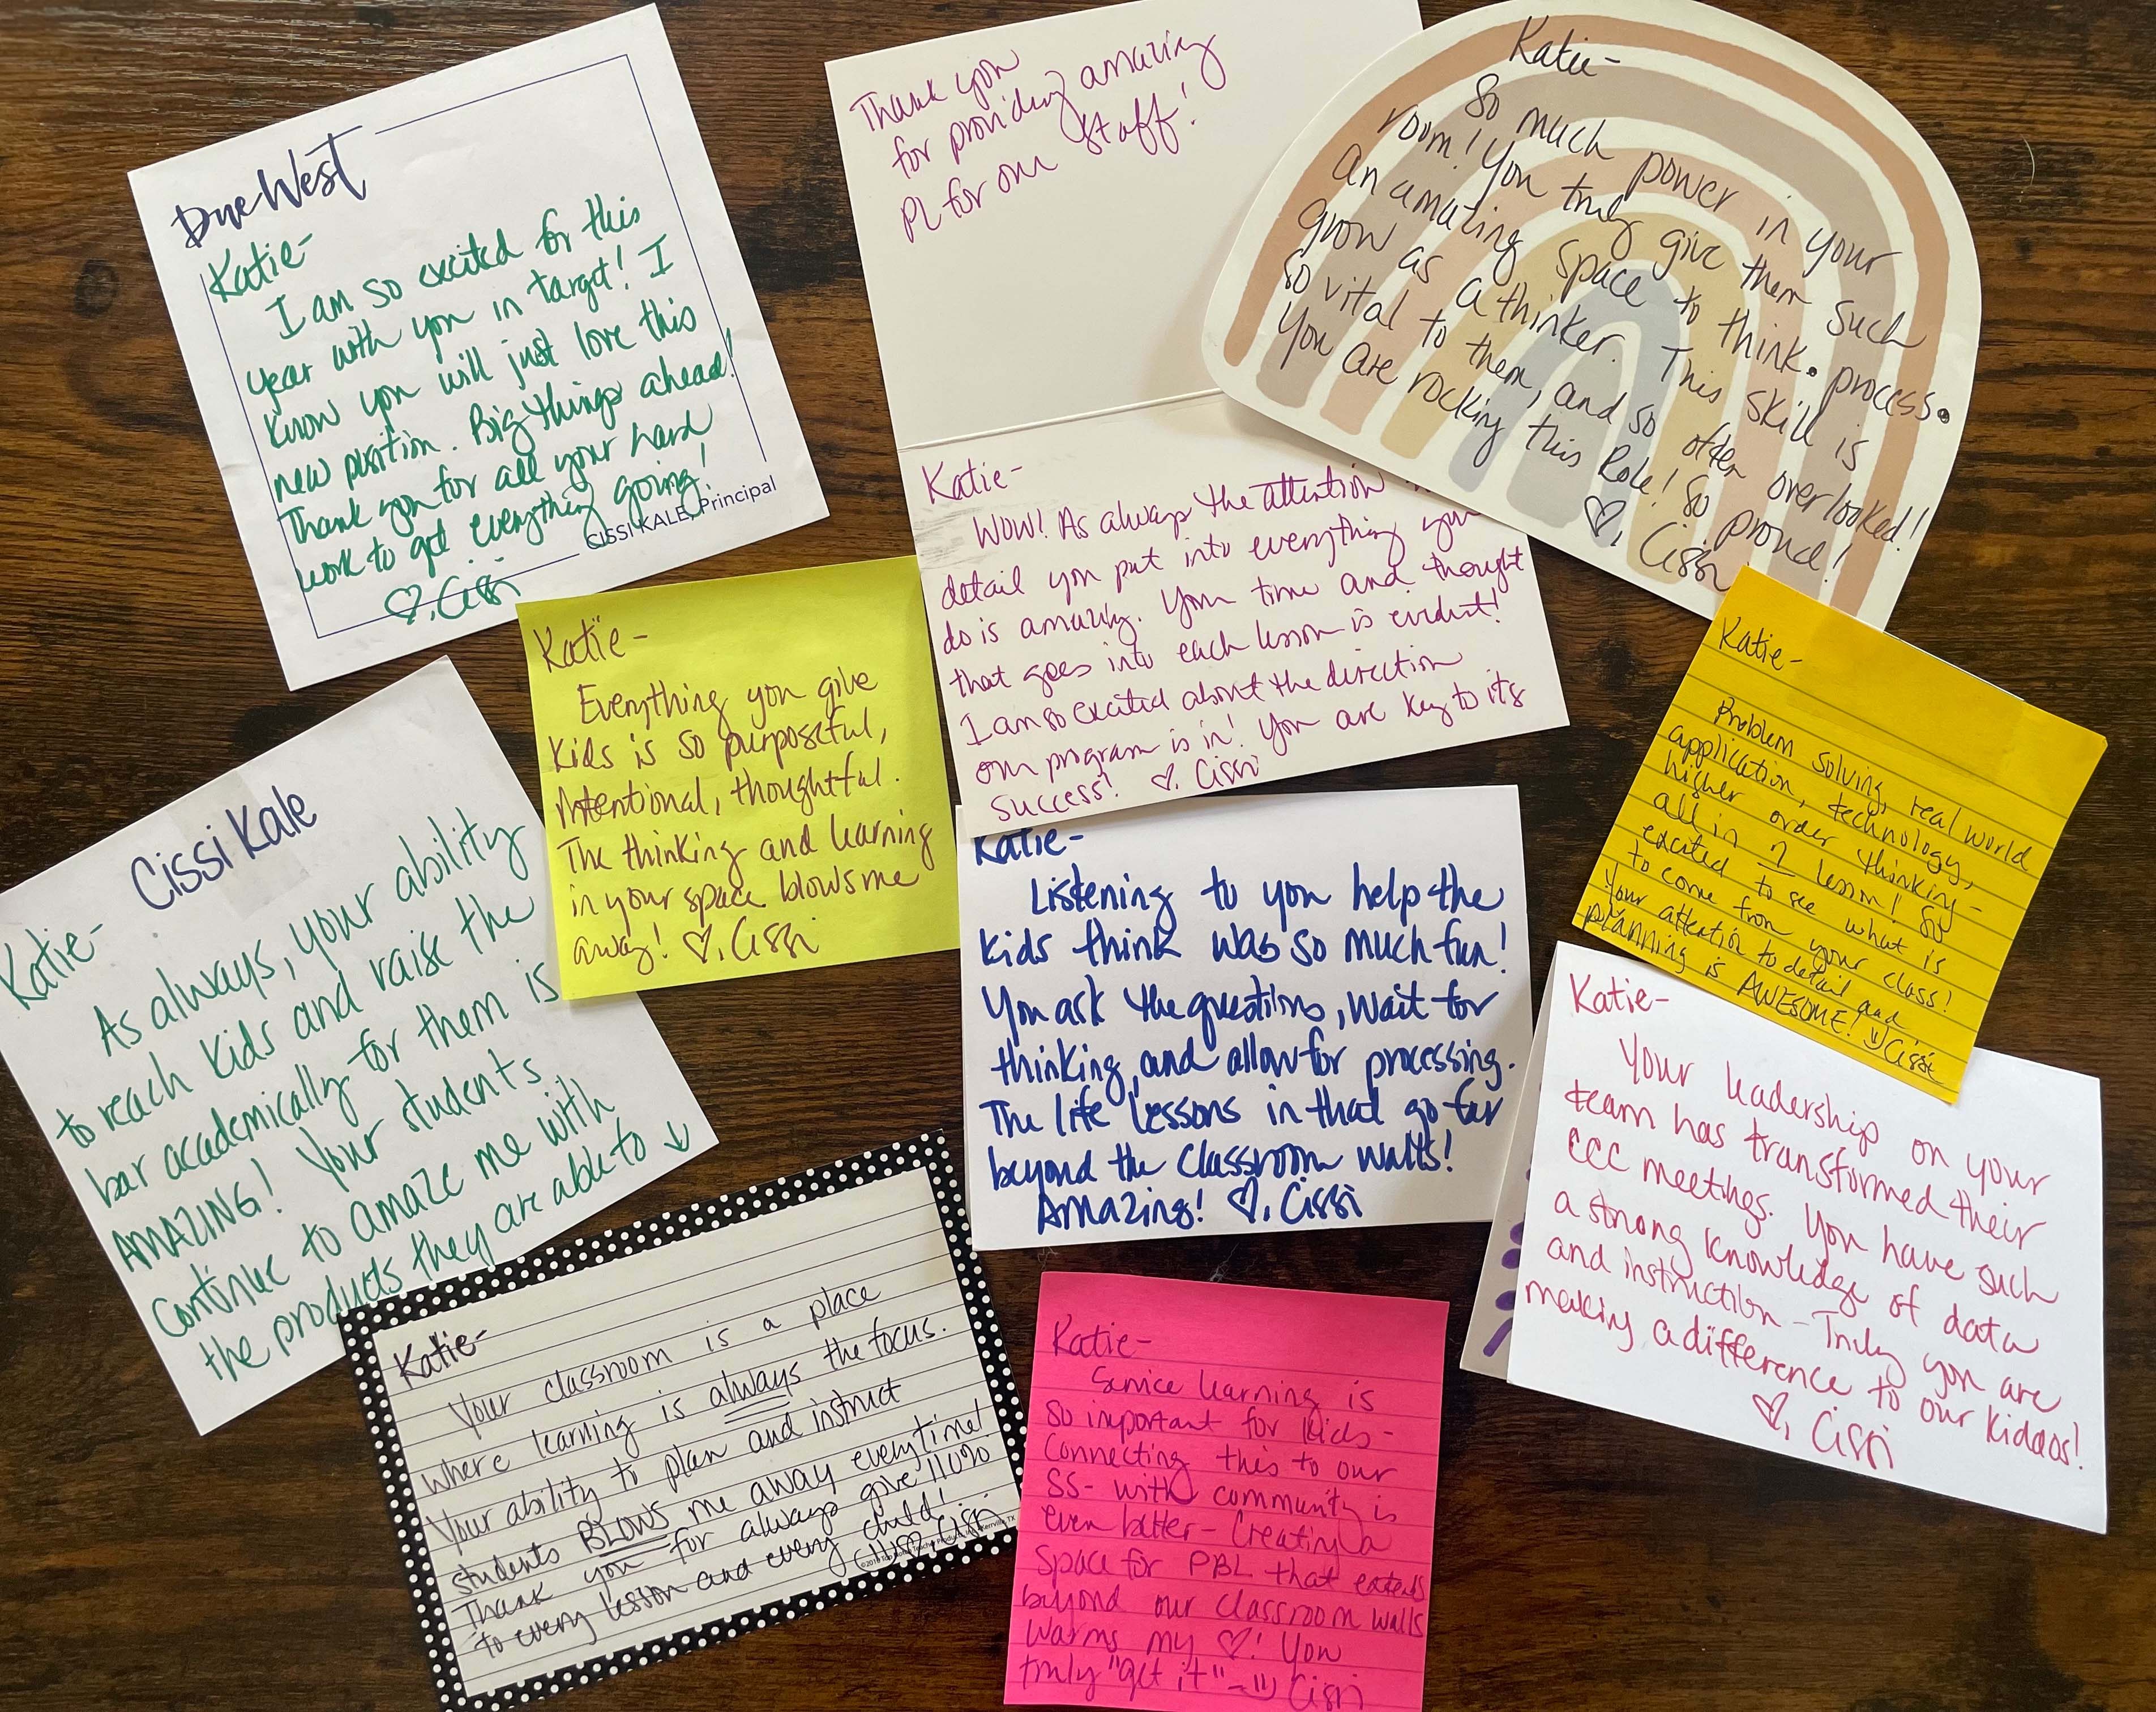 Due West
Katie-
I am so excited for this
year with you in target! I
know you will just love this
new position. Big things ahead!
Thank you for all your hard
work to get everything going!
♡, Cissi
CISSI KALE, Principal
Thank you
for providing amazing
PL for our staff!
Katie-
WOW! As always the attention
detail you put into everything you
do is amazing. Your time and thought
that goes into each lesson is evident!
I am so excited about the direction
our program is in! You are key to its
success! ♡, Cissi
Katie-
So much power in your
room! You truly give them such
an amazing space to think. process.
grow as a thinker. This skill is
so vital to them, and so often overlooked!
You are rocking this Role! So proud!
♡, Cissi
Katie-
Everything you give
kids is so purposeful,
intentional, thoughtful.
The thinking and learning
in your space blows me
away! ♡, Cissi
Katie-
Problem solving, real world
application, technology,
higher order thinking-
all in 1 lesson! So
excited to see what is
to come from your class!
Your attention to detail and
planning is AWESOME! Cissi
Cissi Kale
Katie-
As always, your ability
to reach kids and raise the
bar academically for them is
AMAZING! Your students
continue to amaze me with
the products they are able to ↓
Katie-
Listening to you help the
kids think was so much fun!
You ask the questions, wait for
thinking, and allow for processing.
The life lessons in that go far
beyond the classroom walls!
Amazing! ♡, Cissi
Katie-
Your leadership on your
team has transformed their
CCC meetings. You have such
a strong knowledge of data
and instruction - Truly you are
making a difference to our kiddos!
♡, Cissi
Katie-
Your classroom is a place
where learning is always the focus.
Your ability to plan and instruct
students BLOWS me away everytime!
Thank you for always give 110%
to every lesson and every child!
♡ Cissi
Katie-
Service learning is
so important for kids-
Connecting this to our
SS- with community is
even better- Creating a
space for PBL that extends
beyond our classroom walls
warms my ♡! You
truly "get it" - Cissi